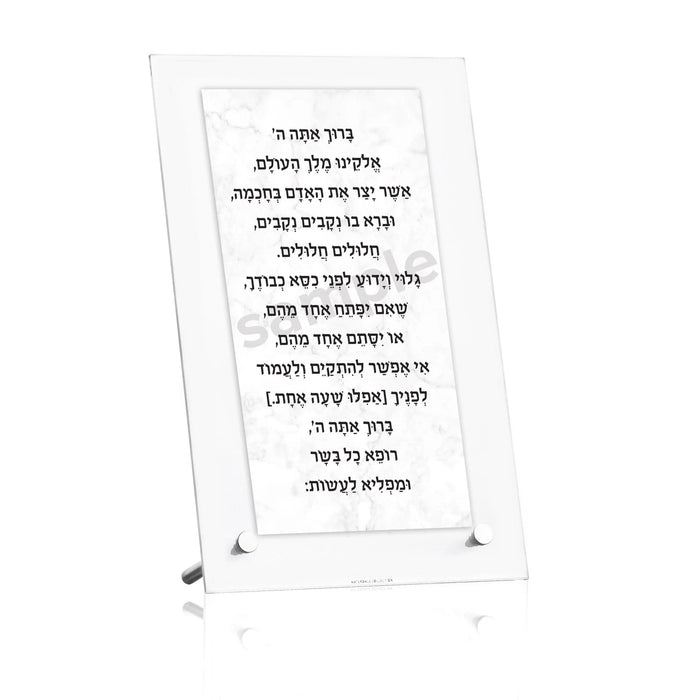 בָּרוּךְ אַתָּה ה'
אֱלֹקֵינוּ מֶלֶךְ הָעוֹלָם,
אֲשֶׁר יָצַר אֶת הָאָדָם בְּחָכְמָה,
וּבָרָא בוֹ נְקָבִים נְקָבִים,
חֲלוּלִים חֲלוּלִים.
גָּלוּי וְיָדוּעַ לִפְנֵי כִסֵּא כְבוֹדֶךָ,
sample
שֶׁאִם יִפָּתֵחַ אֶחָד מֵהֶם,
אוֹ יִסָּתֵם אֶחָד מֵהֶם,
אִי אֶפְשַׁר לְהִתְקַיֵּם וְלַעֲמוֹד
לְפָנֶיךָ [אֲפִלּוּ שָׁעָה אֶחָת.]
בָּרוּךְ אַתָּה ה',
רוֹפֵא כָל בָּשָׂר
וּמַפְלִיא לַעֲשׂוֹת: